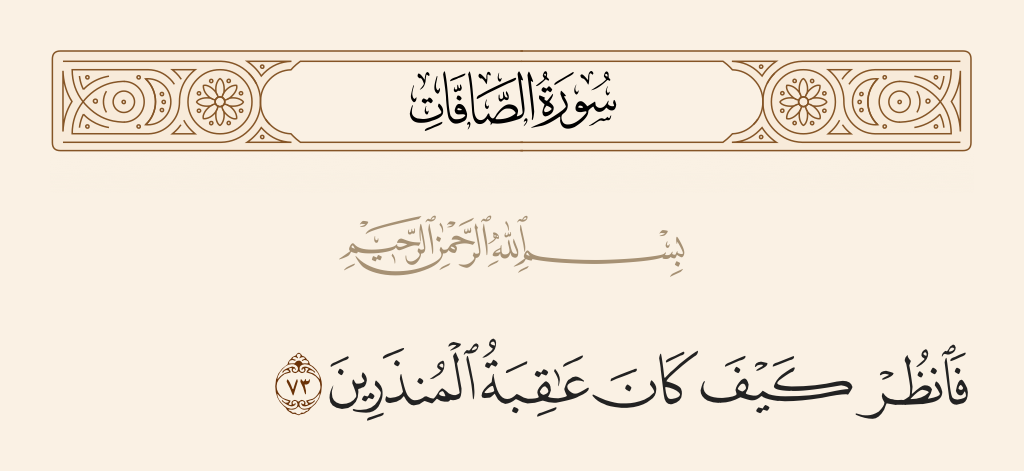 سُورَةُ الصَّافَّاتِ
بِسْمِ ٱللَّهِ ٱلرَّحْمَٰنِ ٱلرَّحِيمِ
فَٱنظُرْ كَيْفَ كَانَ عَٰقِبَةُ ٱلْمُنذَرِينَ ٧٣